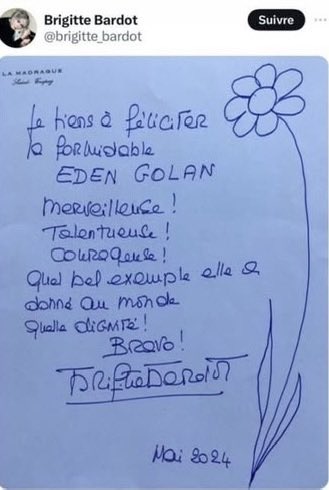 Brigitte Bardot
@brigitte_bardot
Suivre
LA MADRAGUE
Saint-Tropez
Je tiens à féliciter
la formidable
EDEN GOLAN
Merveilleuse !
Talentueuse !
Courageuse !
Quel bel exemple elle a
donné au monde
quelle dignité !
Bravo !
Brigitte Bardot
Mai 2024